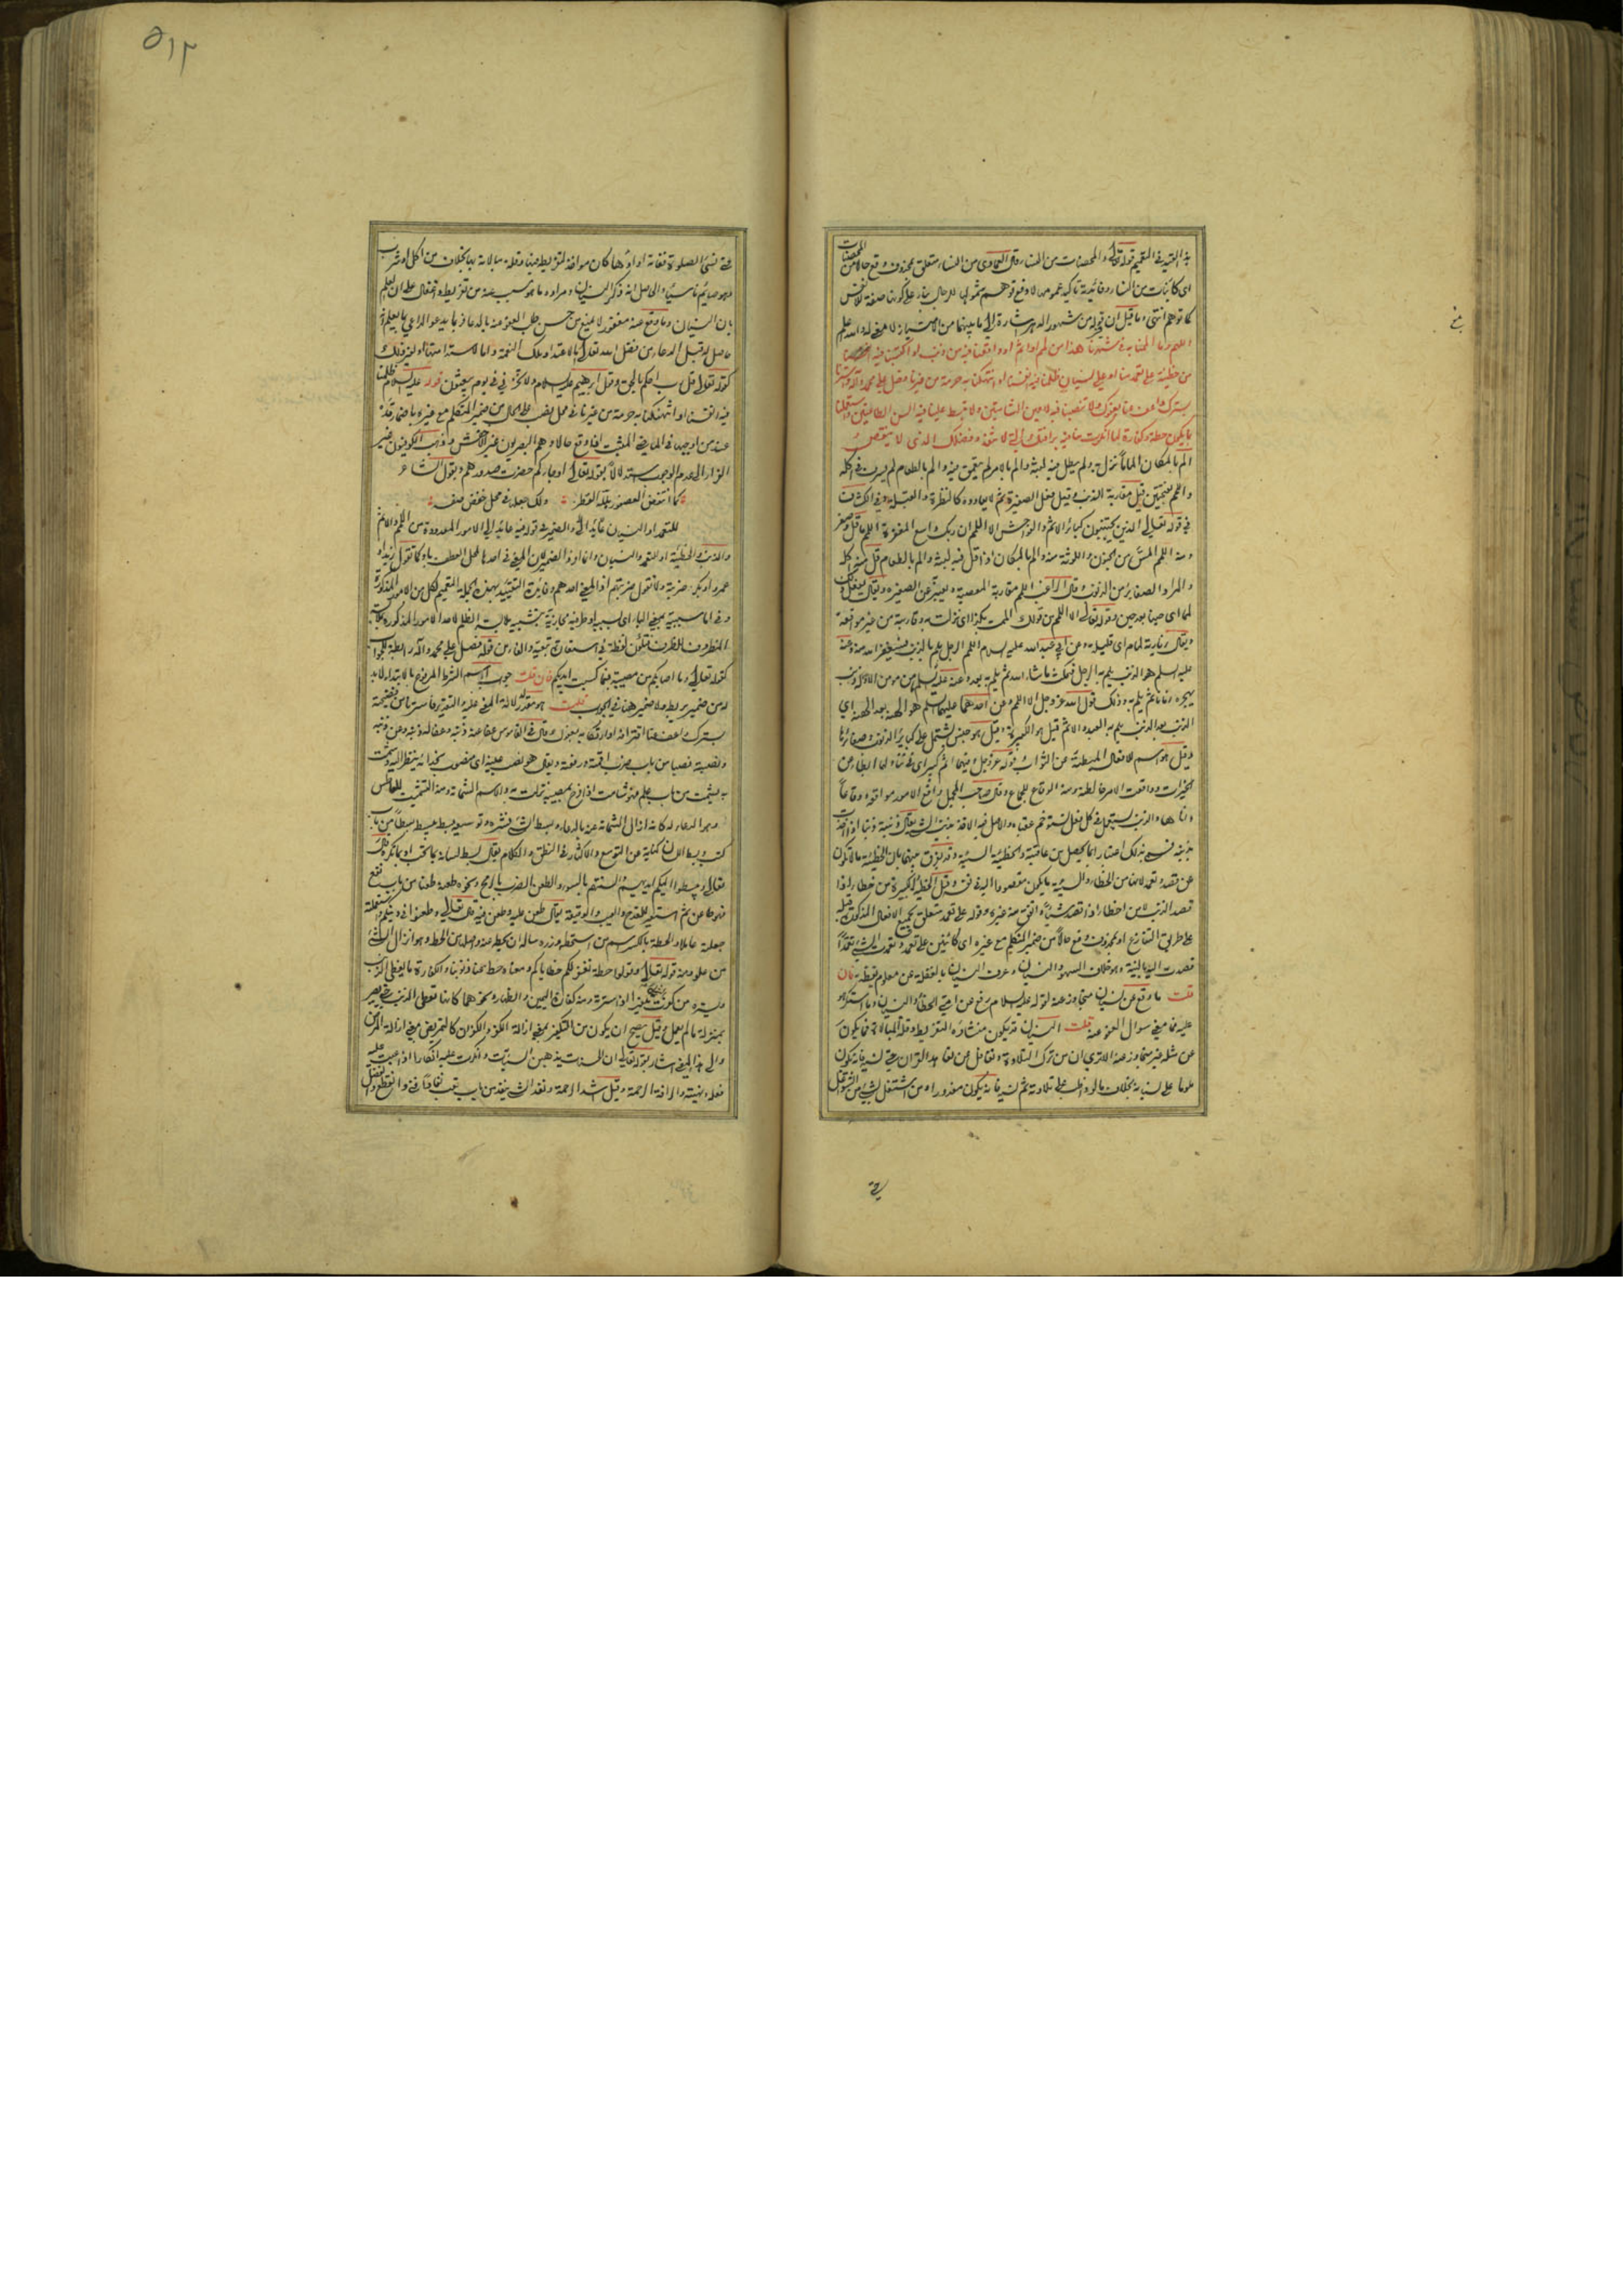 به التقييد في التعميم قوله تعالى والمحصنات من النساء وقال من النساء متعلق بمحذوف وقع حالا من المحصنات
اي كائنات من النساء وفائدته تأكيد عمومها لا دفع توهم شمولها للرجال بناء على كونها صفة للانفس
كما توهم انتهى وما قيل ان في قوله من شهور الدهر اشارة الى ما بينهما من الامتياز لا معنى له والله اعلم
اللهم وما الممنا به في شهرنا هذا من لمم او اثم او واقعنا فيه من ذنب او اكتسبنا فيه
من خطيئة على تعمد منا او على نسيان ظلمنا فيه انفسنا او انتهكنا به حرمة من غيرنا فصل على محمد وآله واسترنا
بسترك واعف عنا بعفوك ولا تنصبنا فيه لاعين الشامتين ولا تبسط علينا فيه السن الطاعنين واستعملنا
بما يكون حطة وكفارة لما انكرت منا فيه برأفتك التي لا تنفد وفضلك الذي لا ينقص
الم بالمكان الماما نزل به ولم يطل فيه لبثه والم بالامر لم يتعمق فيه والم بالطعام لم يسرف في اكله
واللمم بفتحتين قيل مقاربة الذنب وقيل فعل الصغيرة ثم لا يعاوده كالنظرة والقبلة وفي الكشاف
في قوله تعالى الذين يجتنبون كبائر الاثم والفواحش الا اللمم ان ربك واسع المغفرة اللمم ما قل وصغر
ومنه اللمم المس من الجنون واللوثة منه والم بالمكان اذا قل فيه لبثه والم بالطعام قل منه اكله
والمراد الصغاير من الذنوب وقال الراغب اللمم مقاربة المعصية ويعبر به عن الصغيرة ويقال يفعل كذا
لمما اي حينا بعد حين وقوله تعالى الا اللمم من قولك الممت بكذا اي نزلت به وقاربته من غير مواقعة
ويقال زيارته المام اي قليلة وعن ابي عبد الله عليه السلام اللمم الرجل يلم بالذنب فيستغفر الله منه وعنه
عليه السلم هو الذنب يلم به الرجل فيمكث ما شاء الله ثم يلم به بعد وعنه عليه السلم ما من مؤمن الا وله ذنب
يهجره زمانا ثم يلم به وذلك قول الله عز وجل الا اللمم وعن احدهما عليهما السلم هو الهنة بعد الهنة اي
الذنب بعد الذنب يلم به العبد والاثم قيل هو الكبيرة وقيل هو جنس يشتمل على كباير الذنوب وصغائرها
وقيل هو اسم للافعال المبطئة عن الثواب وقوله عز وجل فيهما اثم كبير اي في تناولهما ابطاء عن
الخيرات وواقعت الامر خالطته ومنه الوقاع للجماع وقال صاحب المجمل واقع الامور مواقعة ووقاعا
داناها والذنب يستعمل في كل فعل يستوخم عقباه والاصل فيه الاخذ بذنب الشئ يقال ذنبته ذنبا اذا اصبت
ذنبه فسمى بذلك اعتبارا بما يحصل من عاقبته والخطيئة السيئة وقد يفرق بينهما بان الخطيئة ما لا تكون
عن قصد وتعمد لانها من الخطاء والسيئة ما يكون مقصودا اليه وقيل الخطيئة الكبيرة من خطا اذا
قصد الذنب لا من اخطا اذا قصد شيئا واتفق منه غيره وقوله على تعمد متعلق بجميع الافعال المذكورة قبله
على طريق التنازع او بمحذوف وقع حالا من ضمير المتكلم مع غيره اي كائنين على تعمد وتعمدت الشئ تعمدا
قصدت اليه بالنية وهو خلاف السهو والنسيان وعرف النسيان بالغفلة عن معلوم فان
قلت ما وقع عن نسيان متجاوز عنه لقوله عليه السلام رفع عن امتي الخطأ والنسيان وما استكرهوا
عليه فما معنى سؤال العفو عنه قلت النسيان قد يكون منشاؤه التفريط وقلة المبالاة فما يكون
عن مثله غير متجاوز عنه الا ترى ان من ترك التلاوة وتغافل عن تعاهد القرآن حتى نسيه فانه يكون
ملوما على نسيانه بخلاف ما لو واظب على تلاوته ثم نسيه فانه يكون معذورا ومن اشتغل بشئ من الشواغل
حتى
٥١٢
حتى نسى الصلوة ففاته اداؤها كان مؤاخذا لتفريطه فيها وقلة مبالاته بها بخلاف من اكل او شرب
وهو صائم ناسيا والحاصل انه ذكر النسيان ومراده ما هو سبب عنه من تفريط واغفال على ان العلم
بان النسيان وما وقع عنه مغفور لا يمنع من حسن طلب العفو عنه بالدعاء فربما يدعو الداعي بما يعلم انه
حاصل له قبل الدعاء من فضل الله تعالى اما لاعتداد تلك النعمة واما لاستدامتها او لغير ذلك
كقوله تعالى قال رب احكم بالحق وقول ابرهيم عليه السلام ولا تخزني يوم يبعثون قوله عليه السلام ظلمنا
فيه انفسنا او انتهكنا به حرمة من غيرنا في محل نصب على الحال من ضمير المتكلم مع غيره باضمار قد
عند من اوجبها في الماضي المثبت اذا وقع حالا وهم البصريون غير الاخفش وذهب الكوفيون غير
الفراء الى عدم الوجوب استدلالا بقوله تعالى او جاؤكم حصرت صدورهم وبقول الشاعر
كما انتفض العصفور بلله القطر ولك جعله في محل خفض صفة
للتعمد او النسيان عائد الى والضمير في قوله فيه عائد الى الامور المعدودة من اللمم والاثم
والذنب والخطيئة او للتعمد والنسيان وانما افرد الضمير لان المعنى في احدها لمحل العطف باو كما تقول زيد او
عمرو او بكر ضربته ولا تقول ضربتهم اذ المعنى احدهم وفايدة التقييد بهذه الجملة التعميم لكل من الامور المذكورة
وفي اما سببية بمعنى الباء اي بسببه او ظرفية مجازية بتشبيه ملابسة الظلم لاحد الامور المذكورة بملابسة
المظروف للظرف فتكون لفظة في استعارة تبعية والفاء من قوله فصل على محمد وآله رابطة للجواب
كقوله تعالى وما اصابكم من مصيبة فبما كسبت ايديكم فان قلت جواب اسم الشرط المرفوع بالابتداء لا بد
له من ضمير يربطه ولا ضمير هنا في الجواب قلت هو مقدر لدلالة المعنى عليه والتقدير فاسترنا من فضيحته
بسترك واعف عنا اقترافه او ارتكابه بعفوك وقال في القاموس عفا عنه ذنبه وعفا له ذنبه وعن ذنبه
ونصبه نصبا من باب ضرب اقمته ورفعته ويقال هو نصب عينه اي منصوب بحذائه ينتظر اليه وشمت
به يشمت من باب علم فهو شامت اذا فرح بمصيبة نزلت به والاسم الشماتة ومنه التشميت للعاطس
وهو الدعاء له كانه ازال الشماتة عنه بالدعاء وبسط الشئ نشره وتوسيعه بسطه يبسطه بسطا من باب
كتب وبسط اللسان كناية عن التوسع والاكثار في النطق والكلام يقال بسط لسانه بما يحب او بما يكره قال
تعالى ويبسطوا اليكم ايديهم والسنتهم بالسوء والطعن الضرب بالرمح ونحوه طعنه طعنا من باب نفع
ثم استعير للقدح والعيب والوقيعة يقال طعن عليه وطعن فيه قال تعالى وطعنوا في دينكم واستعملته
جعلته عاملا والحطة بالكسر اسم من استحطه وزره سأله ان يحطه عنه واصله من الحط وهو انزال الشئ
من علو ومنه قوله تعالى وقولوا حطة نغفر لكم خطاياكم ومعناه حط عنا ذنوبنا والكفارة ما يغطي الذنب
ويستره من كفرت الشئ اذا سترته ومنه كفارة اليمين والظهار ونحوهما كانها تغطي الذنب حتى يصير
بمنزلة ما لم يعمل وقيل يصح ان يكون من التكفير بمعنى ازالة الكفر والكفران كالتمريض بمعنى ازالة المرض
والى هذا المعنى اشار بقوله تعالى ان الحسنات يذهبن السيئات وانكرت عليه انكارا اذا عبت عليه
فعله ونهيته والرأفة الرحمة وقيل اشد الرحمة ونفد الشئ ينفد من باب تعب نفادا فني وانقطع والفضل